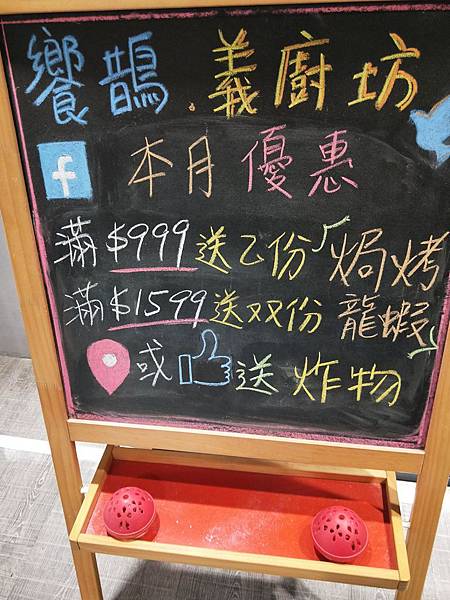 饗鵲.義廚坊
f 本月優惠
滿$999送乙份
滿$1599送双份
焗烤
龍蝦
或 送 炸物